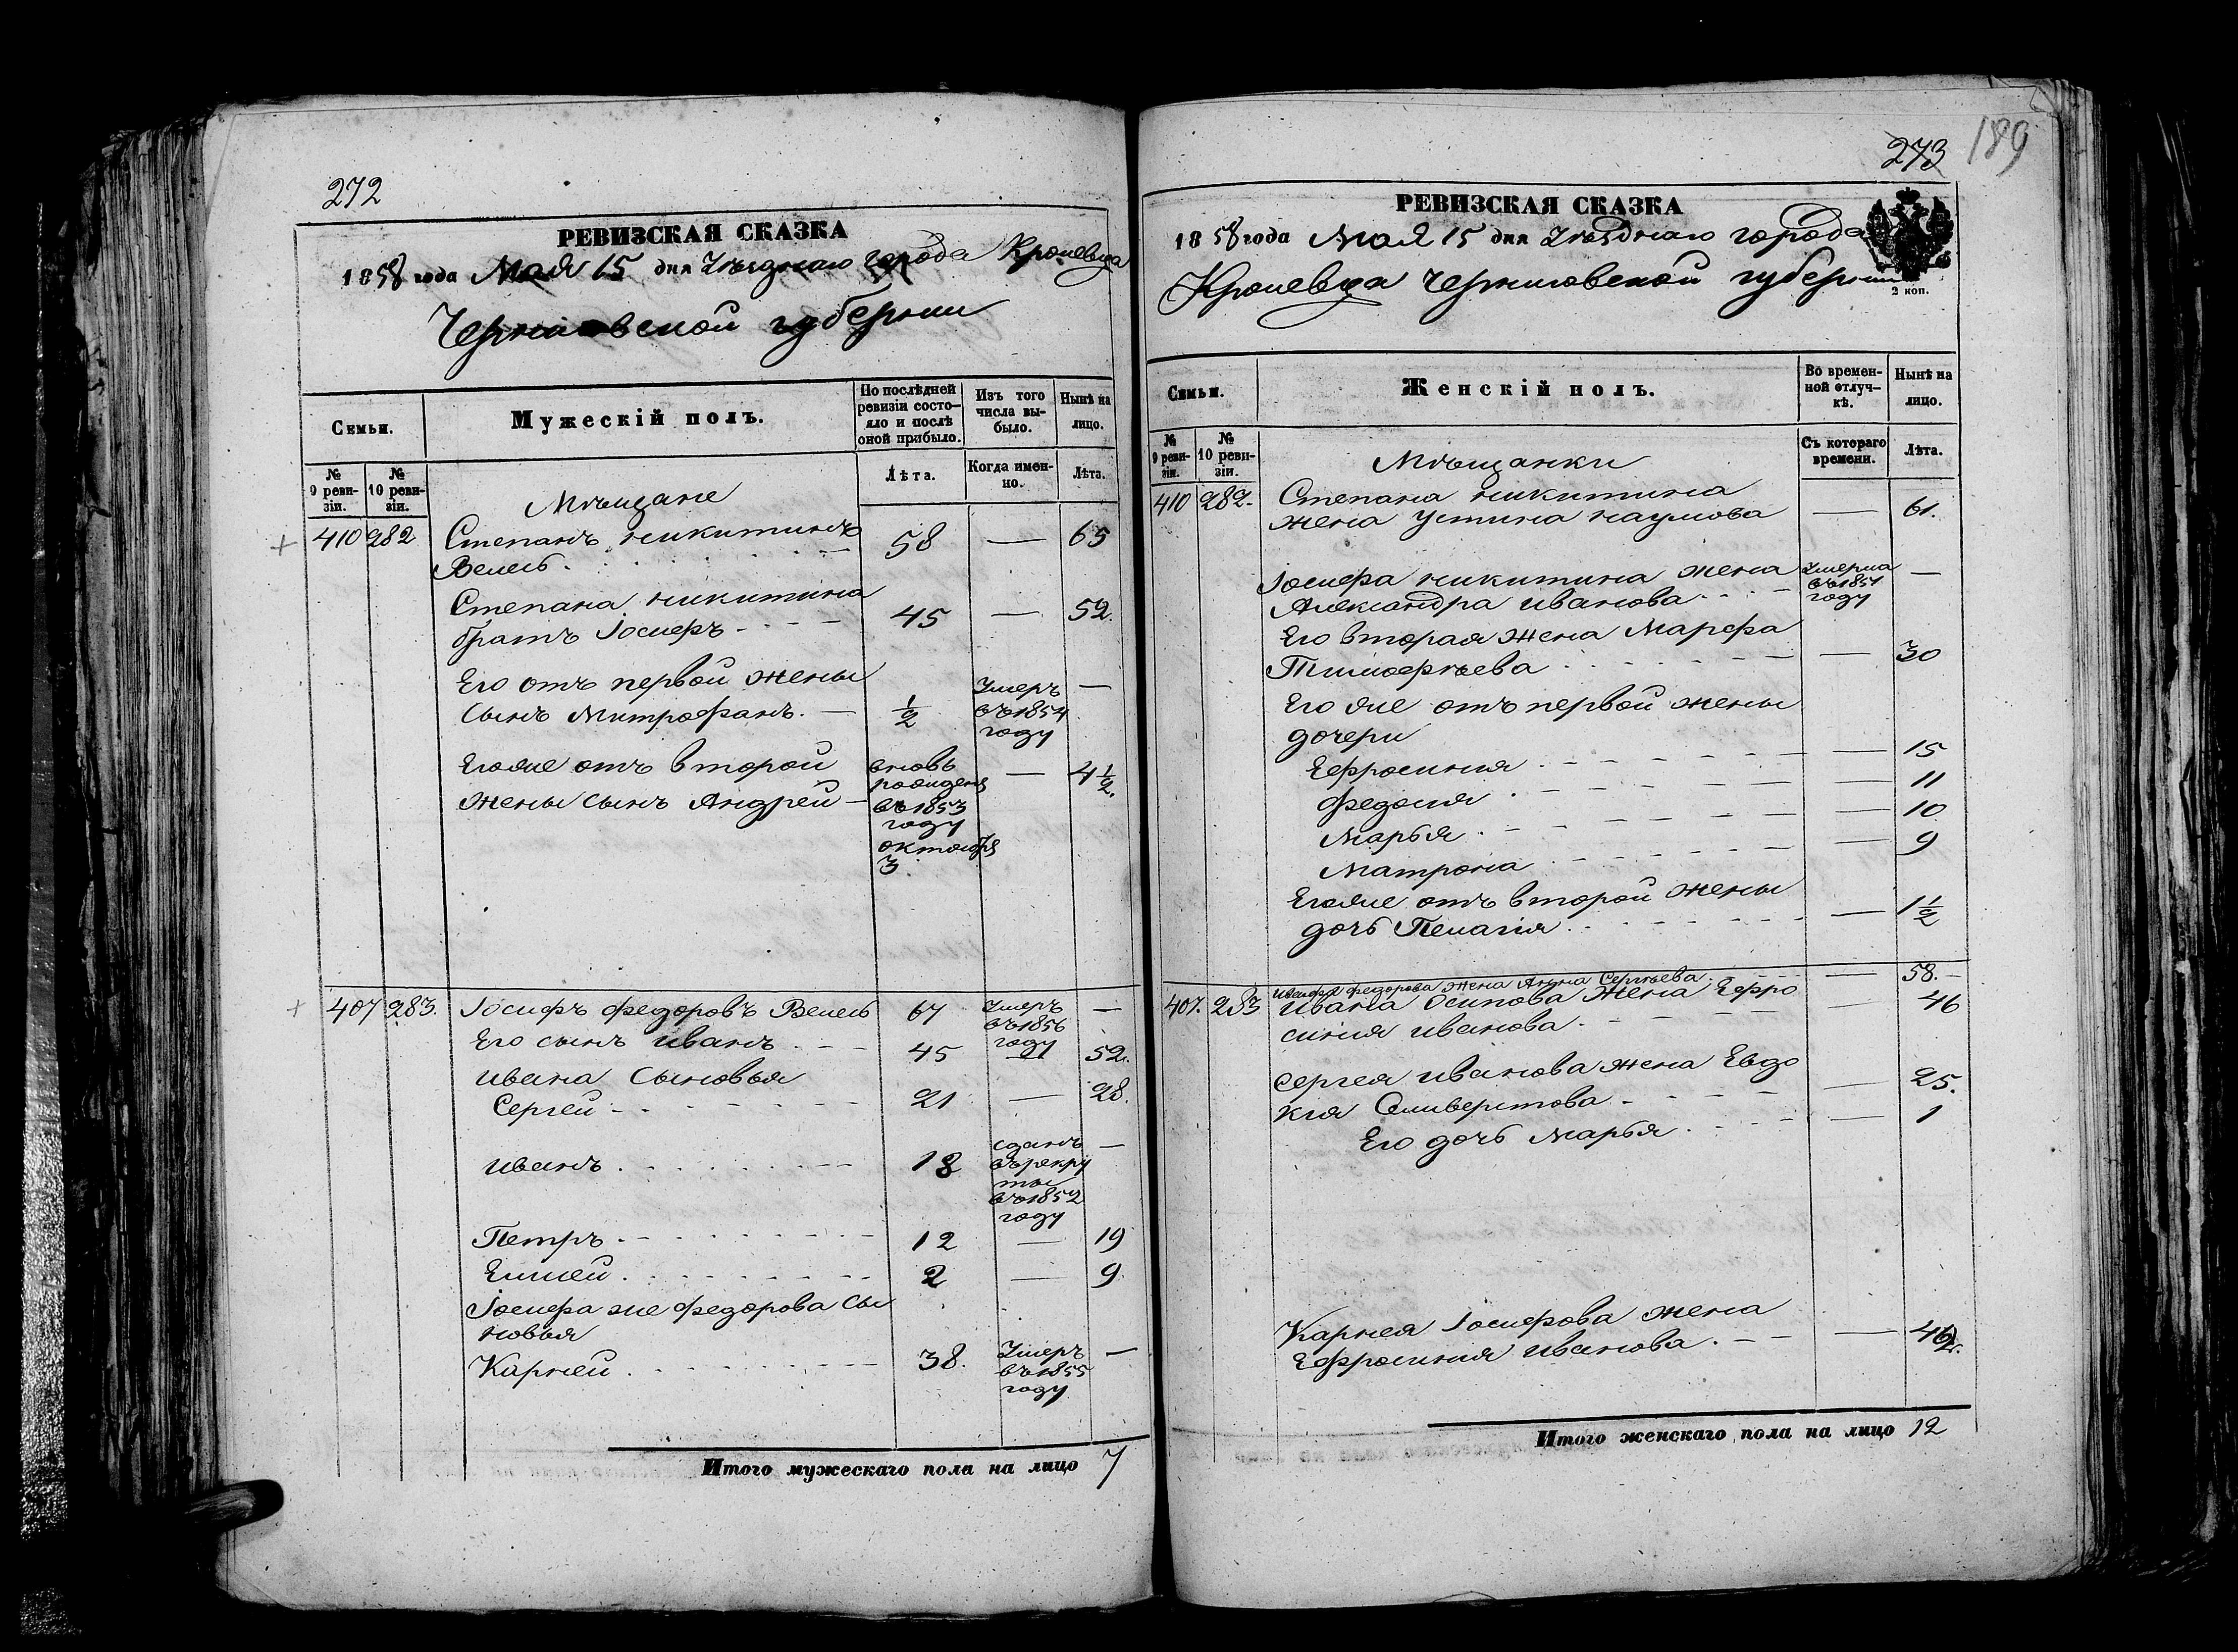 272
РЕВИЗСКАЯ СКАЗКА
1858 года Мая 15 дня Уѣзднаго города Кролевца
Черниговской губернии
Семьи.
Мужескій полъ.
По послѣдней ревизіи состо-
яло и послѣ
оной прибыло.
Изъ того
числа вы-
было.
Нынѣ на
лицо.
№
9 реви-
зіи.
№
10 реви-
зіи.
Лѣта.
Когда имен-
но.
Лѣта.
Мѣщане
410 282 Степанъ Никитинъ 58 — 65
Велесь
Степана Никитина
братъ Іосифъ 45 — 52.
Его отъ первой жены
сынъ Митрофанъ. — 1/2 Умеръ въ 1854 году —
Его же отъ второй
жены сынъ Андрей — вновь рожденъ въ 1853 году октября 3. — 4 1/2.
407 283. Іосифъ Федоровъ Велесь 67 Умеръ въ 1856 году —
Его сынъ Иванъ 45 — 52.
Ивана сыновья
Сергей 21 — 28.
Иванъ 18 сданъ въ рекруты въ 1852 году —
Петръ 12 — 19
Елисей 2 — 9.
Іосифа же Федорова сы
новья
Карней 38. Умеръ въ 1855 году —
Итого мужескаго пола на лицо 7
273 189
РЕВИЗСКАЯ СКАЗКА
1858 года Мая 15 дня Уѣзднаго города
Кролевца Черниговской губернии
2 коп.
Семьи.
Женскій полъ.
Во времен-
ной отлуч-
кѣ.
Нынѣ на
лицо.
№
9 реви-
зіи.
№
10 реви-
зіи.
Съ котораго
времени.
Лѣта.
Мѣщанки
410 282. Степана Никитина
жена Устина Наумова — 61.
Іосифа Никитина жена Умерла въ 1851 году —
Александра Иванова
Его вторая жена Марфа
Тимофѣева — 30
Его же отъ первой жены
дочери
Ефросиния — 15
Федосия — 11
Марья — 10
Матрона — 9
Его же отъ второй жены
дочь Пелагія — 1 1/2
Иосифа Федорова жена Анна Сергѣева — 58.
407. 283 Ивана Осипова жена Ефро — 46
синия Иванова
Сергея Иванова жена Евдо
кия Селиверстова — 25.
Его дочь Марья — 1
Карнея Іосифова жена
Ефросиния Иванова —
Итого женскаго пола на лицо 12